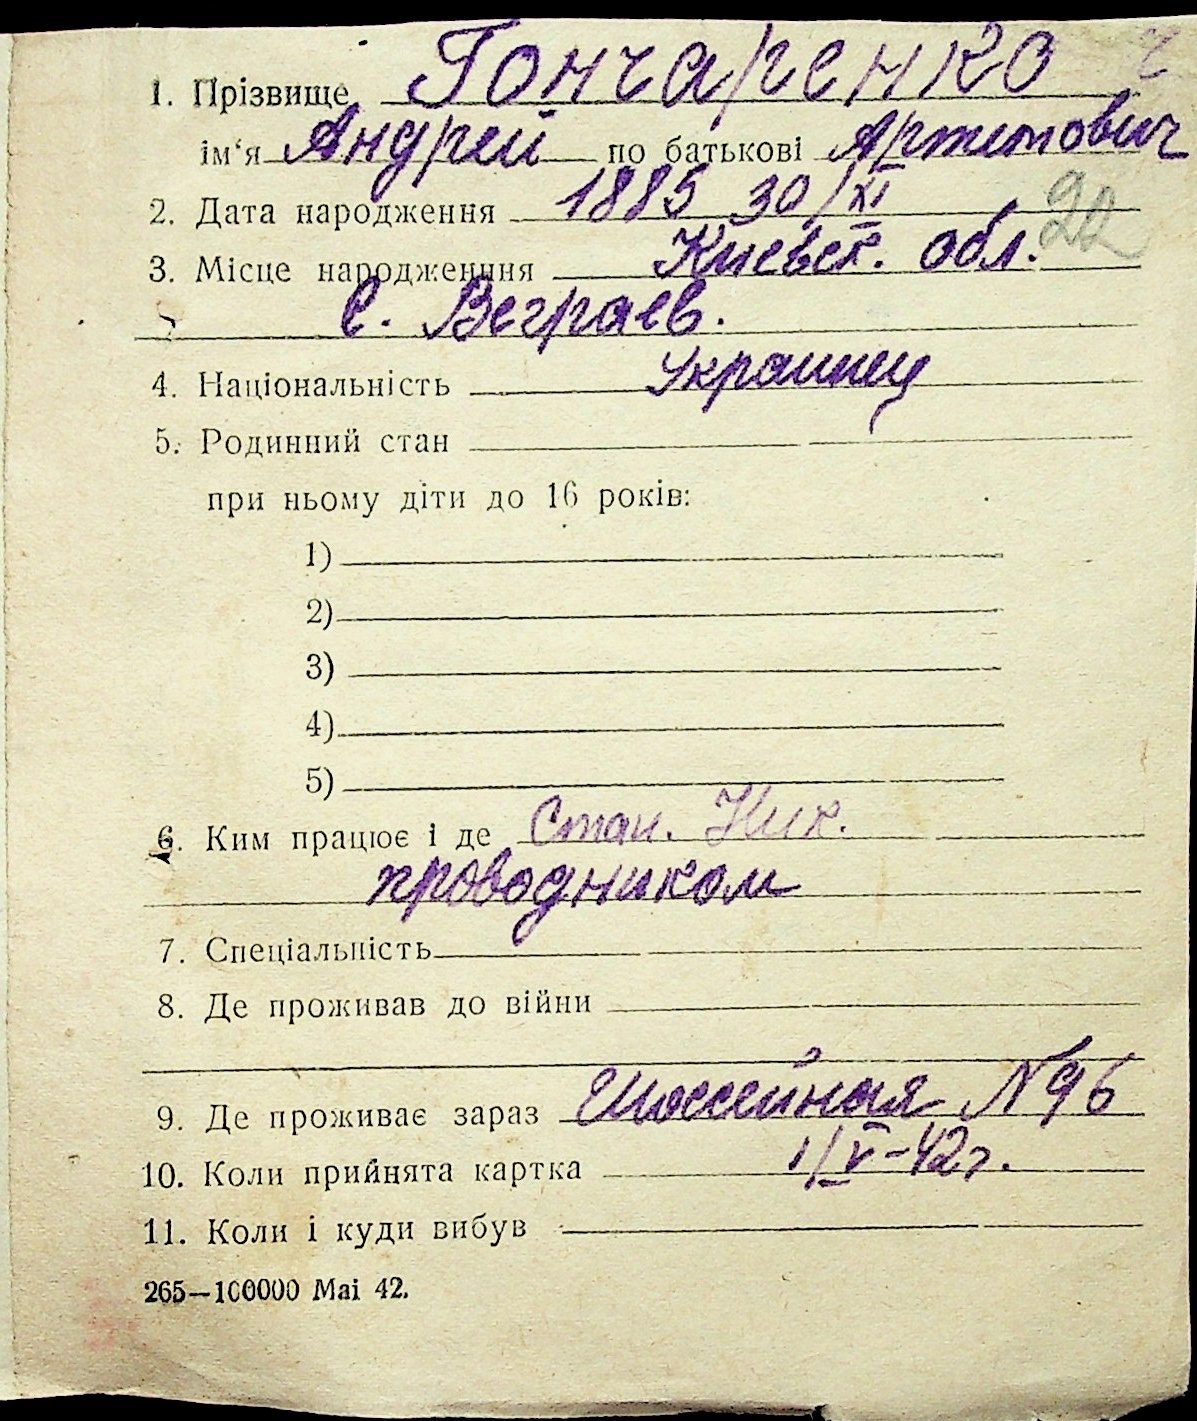 1. Прізвище Гончаренко
ім'я Андрей по батькові Артемович
2. Дата народження 1885 30/XI
22
3. Місце народженння Киевск. обл.
с. Веграев.
4. Національність Украинец
5. Родинний стан
при ньому діти до 16 років:
1)
2)
3)
4)
5)
6. Ким працює і де Стан. Ник.
проводником
7. Спеціальність
8. Де проживав до війни
9. Де проживає зараз Шоссейная N 96
10. Коли прийнята картка 1/V-42г.
11. Коли і куди вибув
265—100000 Mai 42.